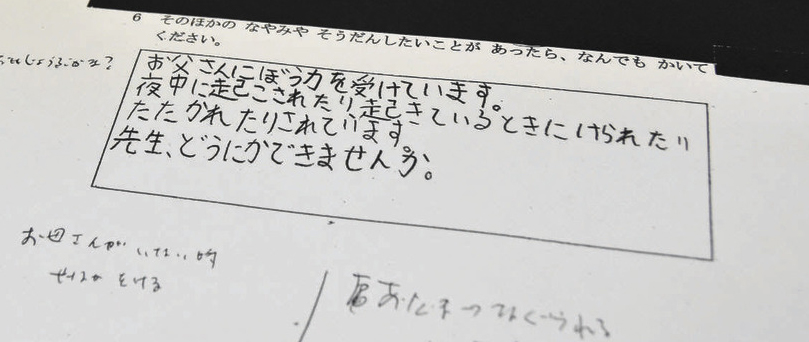 6 そのほかの なやみや そうだんしたいことが あったら、なんでも かいて
ください。
お父さんにぼう力を受けています。
夜中に起こされたり起きているときにけられたり
たたかれたりされています。
先生、どうにかできませんか。
お母さんがいない時